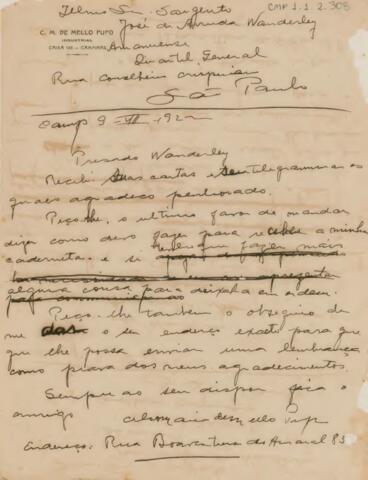 CMP 1.1.2.303
Illmo Snr. Sargento
José de Arruda Wanderley
C. M. DE MELLO PUPO
INDUSTRIAL
CAIXA - CAMPINAS
Amanuense
Quartel General
Rua Conselheiro Crispiniano
São Paulo
Camp 9 - 1922
Presado Wanderley
Recebi suas cartas e seu telegramma as
quaes agradeço penhorado.
Peço-lhe, o ultimo favor de mandar
dizer como devo fazer para receber a minha
caderneta e si tenho que fazer mais
alguma cousa para deixal-a em ordem.
Peço-lhe tambem o obsequio de
me dar o seu endereço exacto para que
que lhe possa enviar uma lembrança
como prova dos meus agradecimentos.
Sempre ao seu dispor fica o
amigo Celso Maria de Mello Pupo
Endereço: Rua Boaventura do Amaral 83